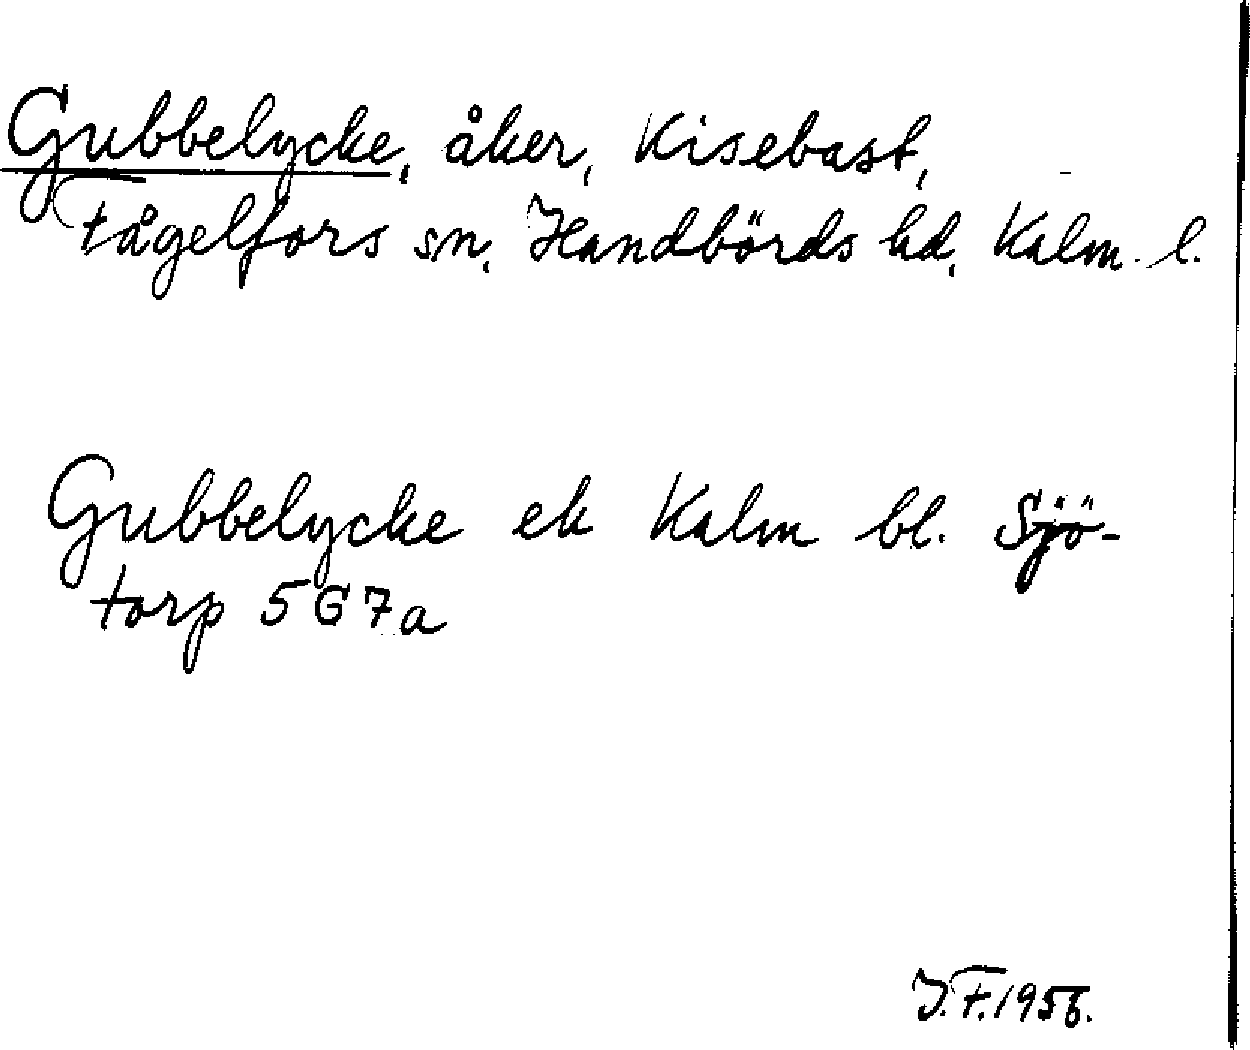 Gubbelycke, åker, Kisebast,
Fågelfors sn, Handbörds hd, Kalm. l.
Gubbelycke ek Kalm bl. Sjö-
torp 5 G 7 a
J.F. 1956.